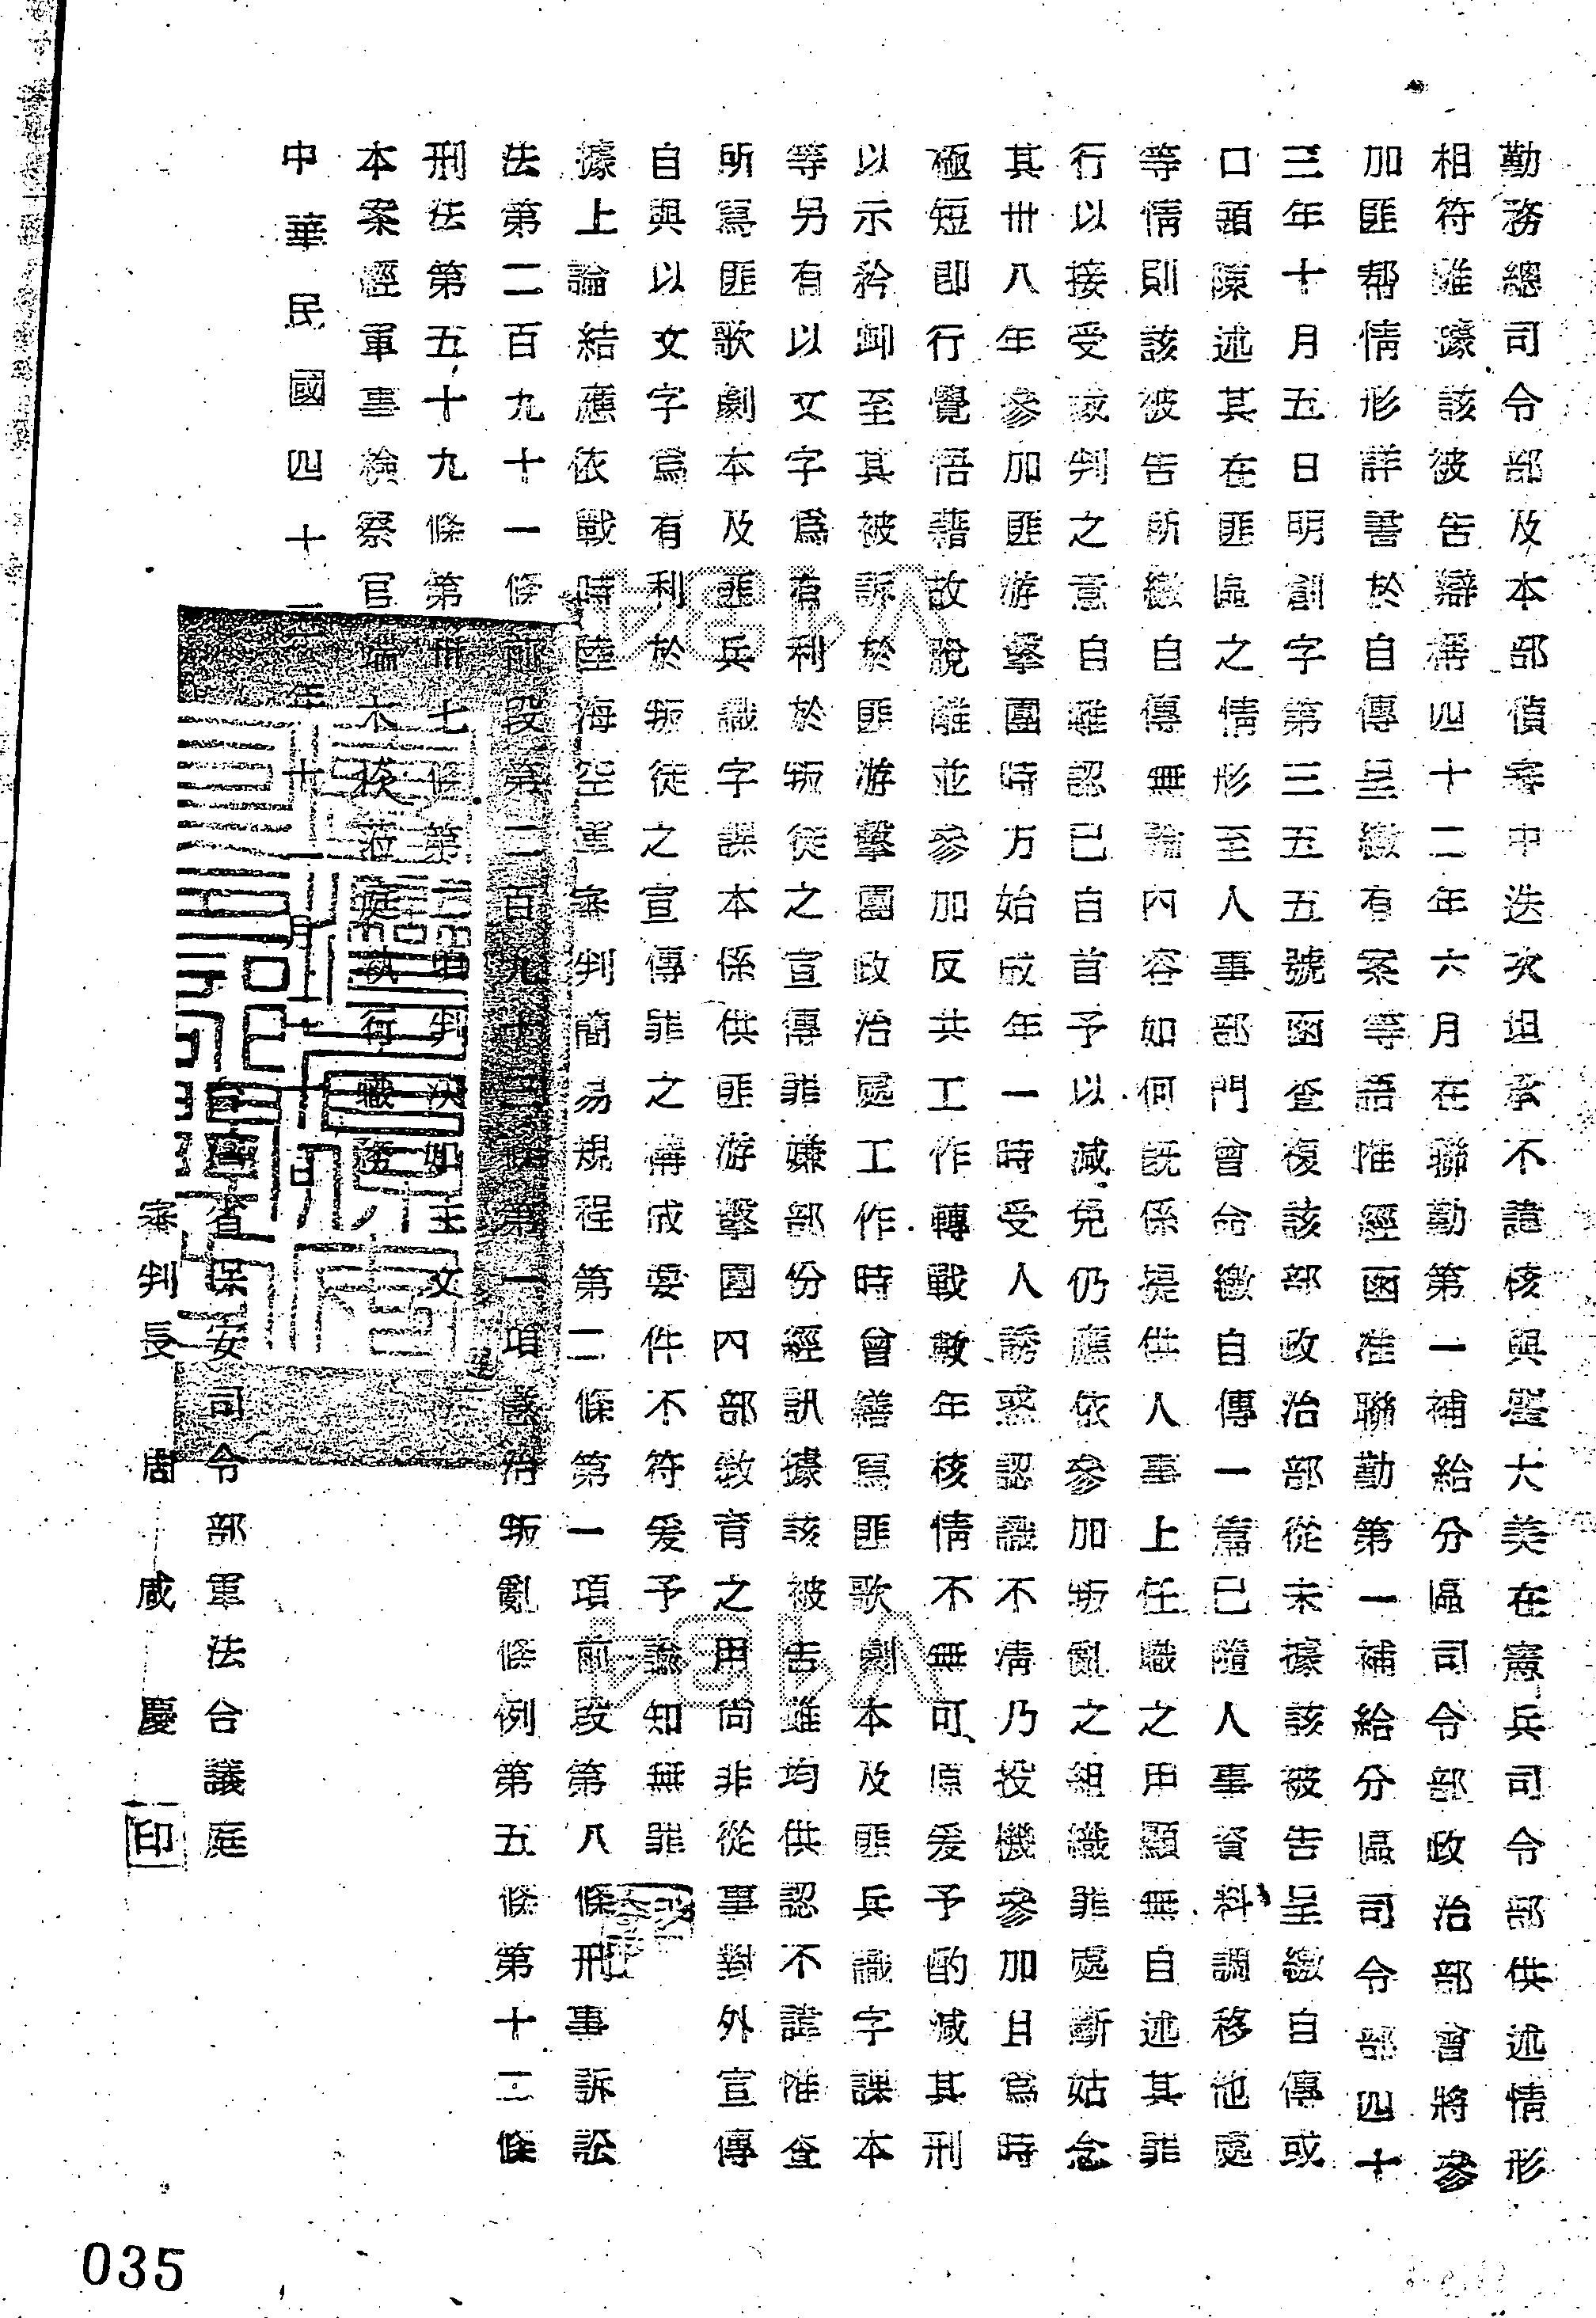 勤務總司令部及本部偵審中迭次坦承不諱核與鹽大美在憲兵司令部供述情形
相符雖據該被告辯稱四十二年六月在聯勤第一補給分區司令部政治部曾將參
加匪幫情形詳書於自傳呈繳有案等語惟經函准聯勤第一補給分區司令部四十
三年十月五日明創字第三五五號函查復該部政治部從未據該被告呈繳自傳或
口頭陳述其在匪區之情形至人事部門曾命繳自傳一篇已隨人事資料調移他處
等情則該被告所繳自傳無論內容如何既係提供人事上任職之用顯無自述其罪
行以接受裁判之意自難認已自首予以減免仍應依參加叛亂之組織罪處斷姑念
其卅八年參加匪游擊團時方始成年一時受人誘惑認識不清乃投機參加且為時
極短即行覺悟藉故脫離並參加反共工作轉戰數年核情不無可原爰予酌減其刑
以示矜卹至其被訴於匪游擊團政治處工作時曾繕寫匪歌劇本及匪兵識字課本
等另有以文字為有利於叛徒之宣傳罪嫌部份經訊據該被告雖均供認不諱惟查
所寫匪歌劇本及匪兵識字課本係供匪游擊團內部教育之用尚非從事對外宣傳
自與以文字為有利於叛徒之宣傳罪之構成要件不符爰予諭知無罪
據上論結應依戰時陸海空軍審判簡易規程第二條第一項前段第八條刑事訴訟
法第二百九十一條前段第二百九十三條第一項懲治叛亂條例第五條第十二條
刑法第五十九條第卅七條第二項判決如主文
本案經軍事檢察官端木棪蒞庭執行職務
中華民國四十三年十一月
臺灣省保安司令部軍法合議庭
審判長 周咸慶 印
035